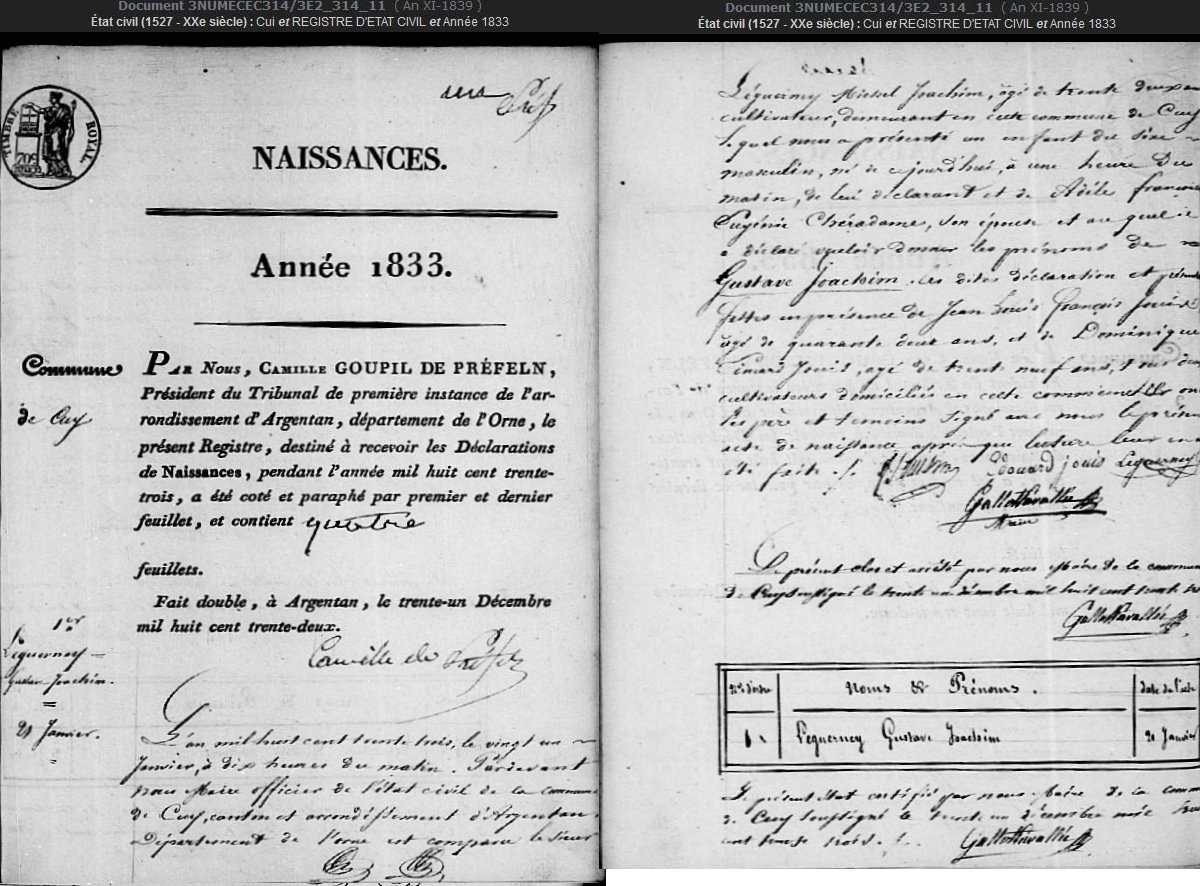 Document 3NUMECEC314/3E2_314_11 ( An XI-1839 )
État civil (1527 - XXe siècle) : Cui et REGISTRE D'ETAT CIVIL et Année 1833
TIMBRE ROYAL
NAISSANCES.
Année 1833.
Commune
de Cuy
PAR Nous, CAMILLE GOUPIL DE PRÉFELN,
Président du Tribunal de première instance de l'ar-
rondissement d'Argentan, département de l'Orne, le
présent Registre, destiné à recevoir les Déclarations
de Naissances, pendant l'année mil huit cent trente-
trois, a été coté et paraphé par premier et dernier
feuillet, et contient quatre
feuillets.
Fait double, à Argentan, le trente-un Décembre
mil huit cent trente-deux.
Camille de
1er
Leguerney
Gustave Joachim.
21 Janvier.
L'an mil huit cent trente trois, le vingt un
Janvier, à dix heures du matin. Pardevant
nous Maire officier de l'état civil de la commune
de Cuy, canton et arrondissement d'Argentan
Département de l'orne est comparu le sieur
Document 3NUMECEC314/3E2_314_11 ( An XI-1839 )
État civil (1527 - XXe siècle) : Cui et REGISTRE D'ETAT CIVIL et Année 1833
Léguerney Michel Joachim, âgé de trente deux ans
cultivateur, demeurant en cette commune de Cuy
lequel nous a présenté un enfant du sexe
masculin, né de cejourd'hui, à une heure du
matin, de lui déclarant et de Adèle françoise
Eugénie Chéradame, son épouse et au quel il
a déclaré vouloir donner les prénoms de
Gustave Joachim. les dites déclaration et
faites en présence de Jean Louis François Jouis
âgé de quarante deux ans, et de Dominique
Jouis, agé de trente neuf ans, tous deux
cultivateurs domiciliés en cette commune
les père et temoins signé avec nous le présent
acte de naissance après que lecture leur en a
été faite.
Edouard jouis Leguerney
Gallot Lavallée
Maire
Le présent clos et arrêté par nous Maire de la commune
de Cuy soussigné le trente un décembre mil huit cent trente trois
Gallot Lavallée
Nos d'ordre
Noms & Prénoms.
date de l'acte
1
Leguerney Gustave Joachim
21 Janvier
Le présent état certifié par nous Maire de la commune
de Cuy soussigné le trente un décembre mil huit
cent trente trois.
Gallot Lavallée